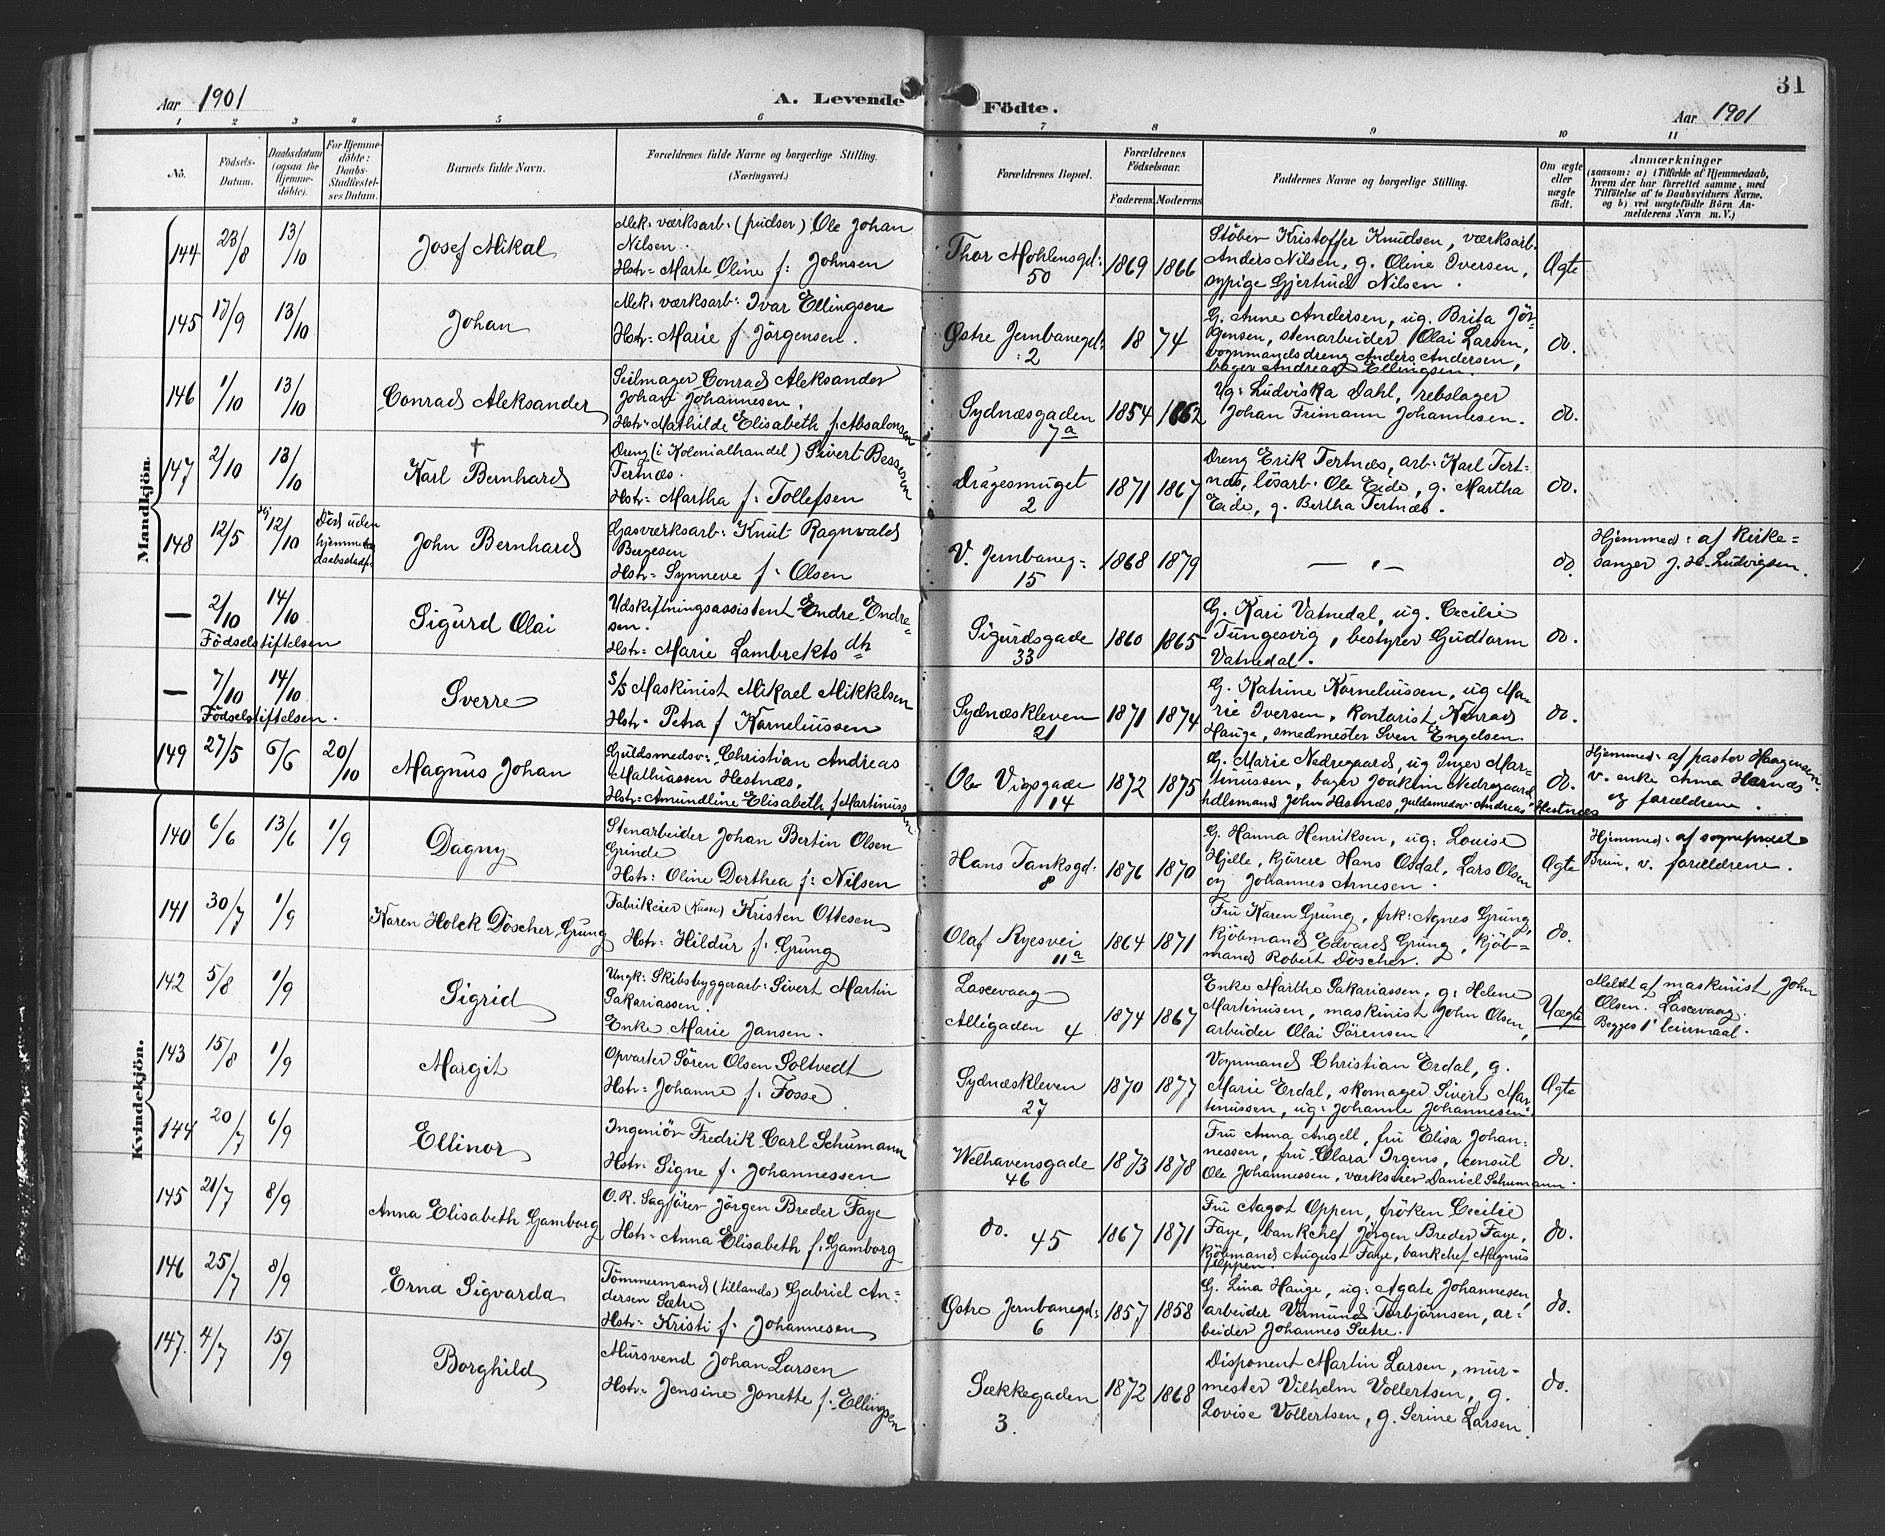 31
Aar 1901
A. Levende Födte.
Aar 1901
1 2 3 4 5 6 7 8 9 10 11
No.
Födsels-Datum.
Daabsdatum (ogsaa for Hjemmedöbte).
For Hjemmedöbte: Daabs-Stadfæstelses Datum.
Barnets fulde Navn.
Forældrenes fulde Navne og borgerlige Stilling. (Næringsvei.)
Forældrenes Bopæl.
Forældrenes Födselsaar.
Faderens Moderens
Faddernes Navne og borgerlige Stilling.
Om ægte eller uægte födt.
Anmærkninger
(saasom: a) i Tilfælde af Hjemmedaab, hvem der har forrettet samme, med Tilföielse af to Daabsvidners Navne, og b) ved uægtefödte Börn Anmelderens Navn m. V.)
Mandkjön.
144 23/8 13/10
Josef Mikal
Mek: værksarb: (pudser) Ole Johan
Nilsen.
Hstr: Marte Oline f: Johnsen
Thor Mohlensgd:
50
1869 1866
Stöber Kristoffer Knudsen, værksarb.
Anders Nilsen, g. Oline Iversen,
sypige Gjertrud Nilsen.
Ægte
145 17/9 13/10
Johan
Mek: værksarb: Ivar Ellingsen
Hstr: Marie f. Jörgensen.
Östre Jernbanegd:
2
18 74
G. Anne Andersen, ug. Brita Jör-
gensen, stenarbeider Olai Larsen,
vognmandsdreng Anders Andersen,
bager Andreas Ellingsen.
do.
146 1/10 13/10
Conrad Aleksander
Seilmager Conrad Aleksander
Johan Johannesen.
Hstr: Mathilde Elisabeth f. Absalonsen
Sydnæsgaden
7a
1854 1862
Ug: Ludviska Dahl, rebslager
Johan Frimann Johannesen.
do.
147 2/10 13/10
†
Karl Bernhard
Dreng (i Kolonialhandel) Sivert Bessesen
Tertnæs.
Hstr: Martha f: Tollefsen
Dragesmuget
2
1871 1867
Dreng Erik Tertnæs, arb: Karl Tert-
næs, lösarb. Ole Eide, g. Martha
Eide, g. Bertha Tertnæs.
do.
148 12/5 Hj 12/10
Död uden
hjemme
daabsstadf.
John Bernhard
Gasværksarb: Knut Ragnvald
Bergesen
Hstr: Synneve f: Olsen
V. Jernbaneg:
15
1868 1879
— " —
do.
Hjemmed: af kirke-
sanger J. H. Ludvigsen.
— 2/10 14/10
Födselstiftelsen
Sigurd Olai
Udskiftningsassistent Endre Endre-
sen.
Hstr: Marie Lambrekts dtr
Sigurdsgade
33
1860 1865
G. Kari Vatnedal, ug. Cecilie
Tungesvig, bestyrer Gudtorm
Vatnedal.
do.
— 7/10 14/10
Födselstiftelsen.
Sverre
S/S Maskinist Mikael Mikkelsen
Hstr: Petra f. Korneliussen
Sydnæskleven
21
1871 1874
G. Katrine Korneliussen, ug Ma-
rie Iversen, kontorist Konrad
Hauge, smedmester Sven Engelsen.
do.
149 27/5 6/6 20/10
Magnus Johan
Guldsmedsv: Christian Andreas
Mathiassen Hestnæs,
Hstr: Amundline Elisabeth f. Martinussen
Ole Vigsgade
14
1872 1875
G. Marie Nedregaard, ug Inger Mar-
tinussen, bager Joakim Nedregaard,
hdlsmand John Hestnæs, guldsmedsv. Andreas Hestnæs
do.
Hjemmed: af pastor Haagensen
v. enke Anna Hernæs
og forældrene.
Kvindekjön.
140 6/6 13/6 1/9
Dagny
Stenarbeider Johan Bertin Olsen
Grinde
Hstr: Oline Dorthea f: Nilsen
Hans Tanksgd:
8
1876 1870
G. Hanna Henriksen, ug: Louise
Hjelle, kjörere Hans Osdal, Lars Olsen
og Johannes Arnesen.
Ægte
Hjemmed: af sogneprest
Brun, v. forældrene.
141 30/7 1/9
Karen Holck Döscher Grung
Fabrikeier (Kasse) Kristen Ottesen
Hstr: Hildur f: Grung
Olaf Ryesvei
11a
1864 1871
Fru Karen Grung, frk: Agnes Grung,
kjöbmand Edvard Grung, kjöb-
mand Robert Döscher.
do.
142 5/8 1/9
Sigrid
Ungk: Skibsbyggerarb: Sivert Martin
Sakariassen.
Enke Marie Jansen.
Laxevaag
Alligaden 4
1874 1867
Enke Marthe Sakariassen, g: Helene
Martinusen, maskinist John Olsen,
arbeider Olai Sörensen.
Uægte
Meldt af maskinist John
Olsen. Laxevaag.
Begges 1' leiermaal.
143 15/8 1/9
Margit
Opvarter Sören Olsen Soltvedt
Hstr: Johanne f. Fosse
Sydnæskleven
27
1870 1877
Vognmand Christian Erdal, g.
Marie Erdal, skomager Sivert Mar-
tinussen, ug: Johanne Johannesen.
Ægte
144 20/7 6/9
Ellinor
Ingeniör Fredrik Carl Schumann
Hstr: Signe f. Johannessen
Welhavensgade
46
1873 1878
Fru Anna Angell, fru Elisa Johan-
nessen, fru Clara Irgens, consul
Ole Johannessen, værkseier Daniel Schumann.
do.
145 21/7 8/9
Anna Elisabeth Gamborg
O. R. Sagförer Jörgen Breder Faye
Hstr: Anna Elisabeth f. Gamborg
do. 45
1867 1871
Fru Aagot Oppen, fröken Cecilie
Faye, bankchef Jörgen Breder Faye,
kjöbmand August Faye, bankchef Magnus
Oppen.
do.
146 25/7 8/9
Erna Sigvarda
Tömmermand (tillands) Gabriel An-
dersen Sætre
Hstr: Kristi f. Johannesen
Östre Jernbanegd:
6
1857 1858
G. Lina Hauge, ug: Agate Johannesen,
arbeider Vermund Torbjörnsen, ar-
beider Johannes Sætre.
do.
147. 4/7 15/9
Borghild
Mursvend Johan Larsen
Hstr: Jensine Jonette f. Ellingsen
Sækkegaden
3.
1872 1868
Disponent Martin Larsen, mur-
mester Vilhelm Vollertsen, g.
Lovise Vollertsen, g. Serine Larsen.
do.